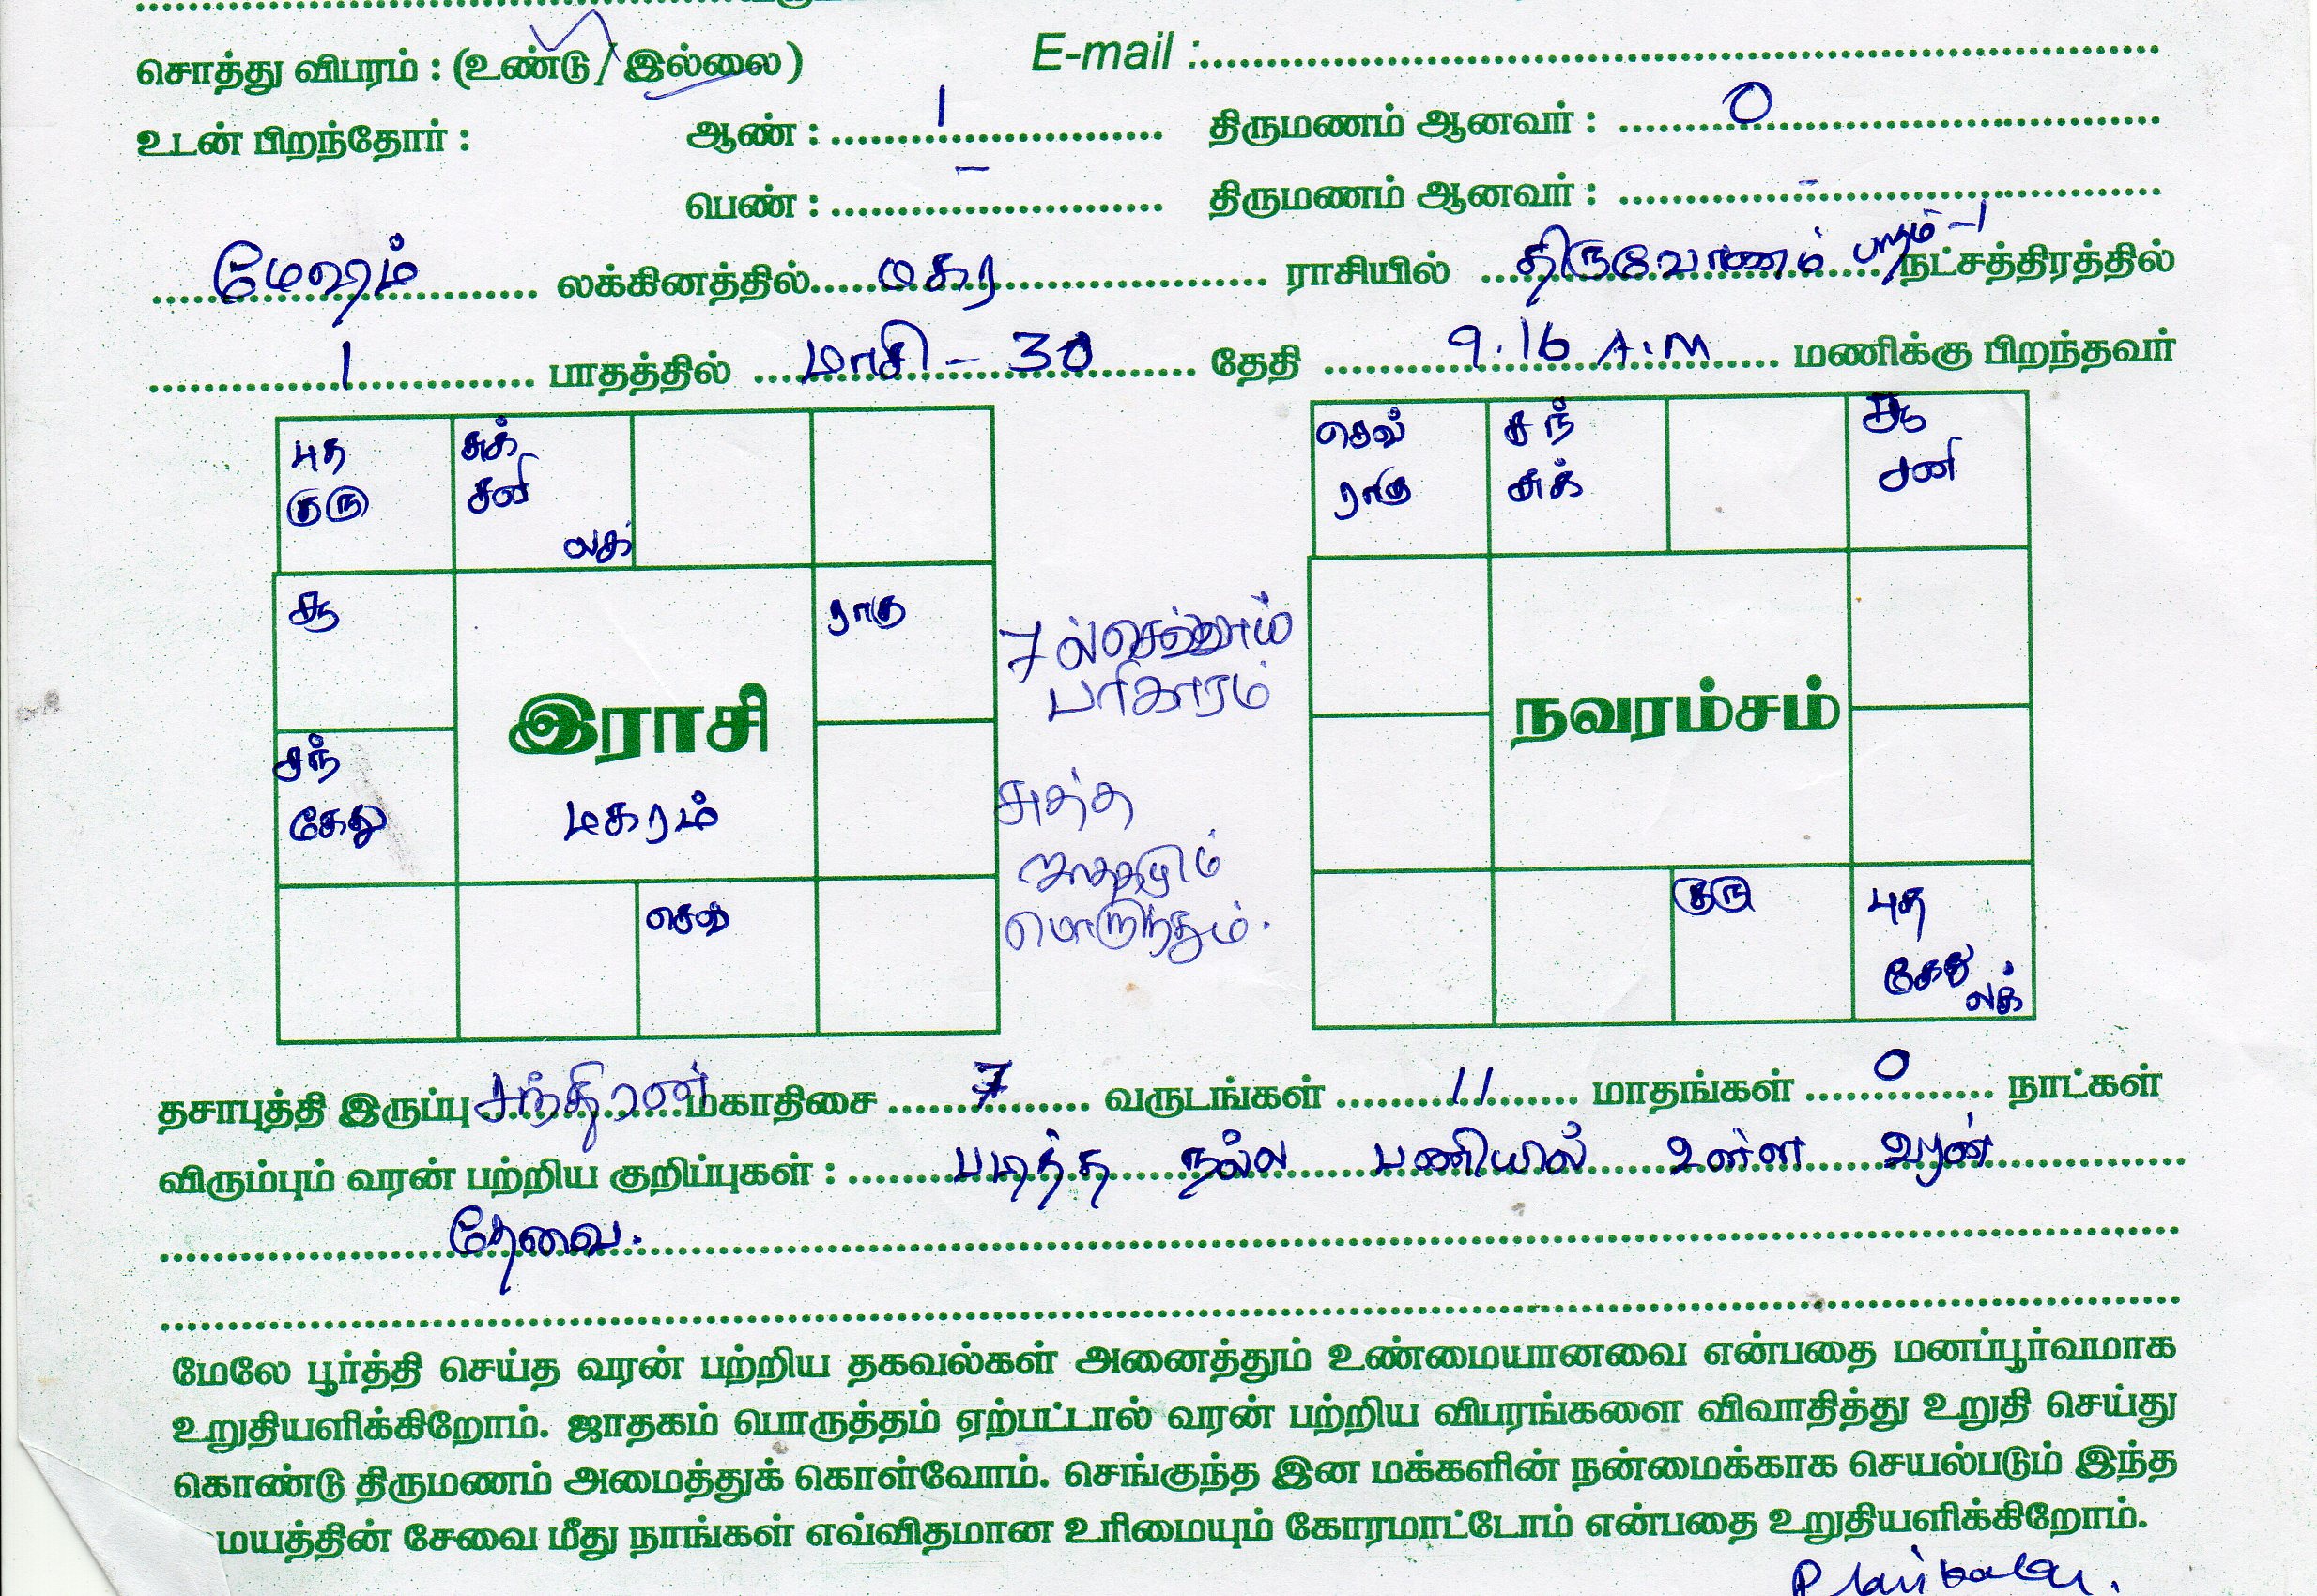 சொத்து விபரம் : (உண்டு / இல்லை) E-mail :
உடன் பிறந்தோர் : ஆண் : 1 திருமணம் ஆனவர் : 0
பெண் : – திருமணம் ஆனவர் : -
மேஷம் லக்கினத்தில் மகர ராசியில் திருவோணம் பாதம் -1 நட்சத்திரத்தில்
1 பாதத்தில் மாசி - 30 தேதி 9.16 A.M மணிக்கு பிறந்தவர்
புத சுக் செவ் சந் சூ
குரு சனி ராகு சுக் சனி
லக்
சூ ராகு
7ல் செவ்வாய்
பரிகாரம்
இராசி நவரம்சம்
சந்
கேது மகரம்
சுத்த
ஜாதகமும்
பொருந்தும்.
செவ் குரு புத
கேது
லக்
தசாபுத்தி இருப்பு சந்திரன் மகாதிசை 7 வருடங்கள் 11 மாதங்கள் 0 நாட்கள்
விரும்பும் வரன் பற்றிய குறிப்புகள் : படித்த நல்ல பணியில் உள்ள வரன்
தேவை.
மேலே பூர்த்தி செய்த வரன் பற்றிய தகவல்கள் அனைத்தும் உண்மையானவை என்பதை மனப்பூர்வமாக
உறுதியளிக்கிறோம். ஜாதகம் பொருத்தம் ஏற்பட்டால் வரன் பற்றிய விபரங்களை விவாதித்து உறுதி செய்து
கொண்டு திருமணம் அமைத்துக் கொள்வோம். செங்குந்த இன மக்களின் நன்மைக்காக செயல்படும் இந்த
மயத்தின் சேவை மீது நாங்கள் எவ்விதமான உரிமையும் கோரமாட்டோம் என்பதை உறுதியளிக்கிறோம்.